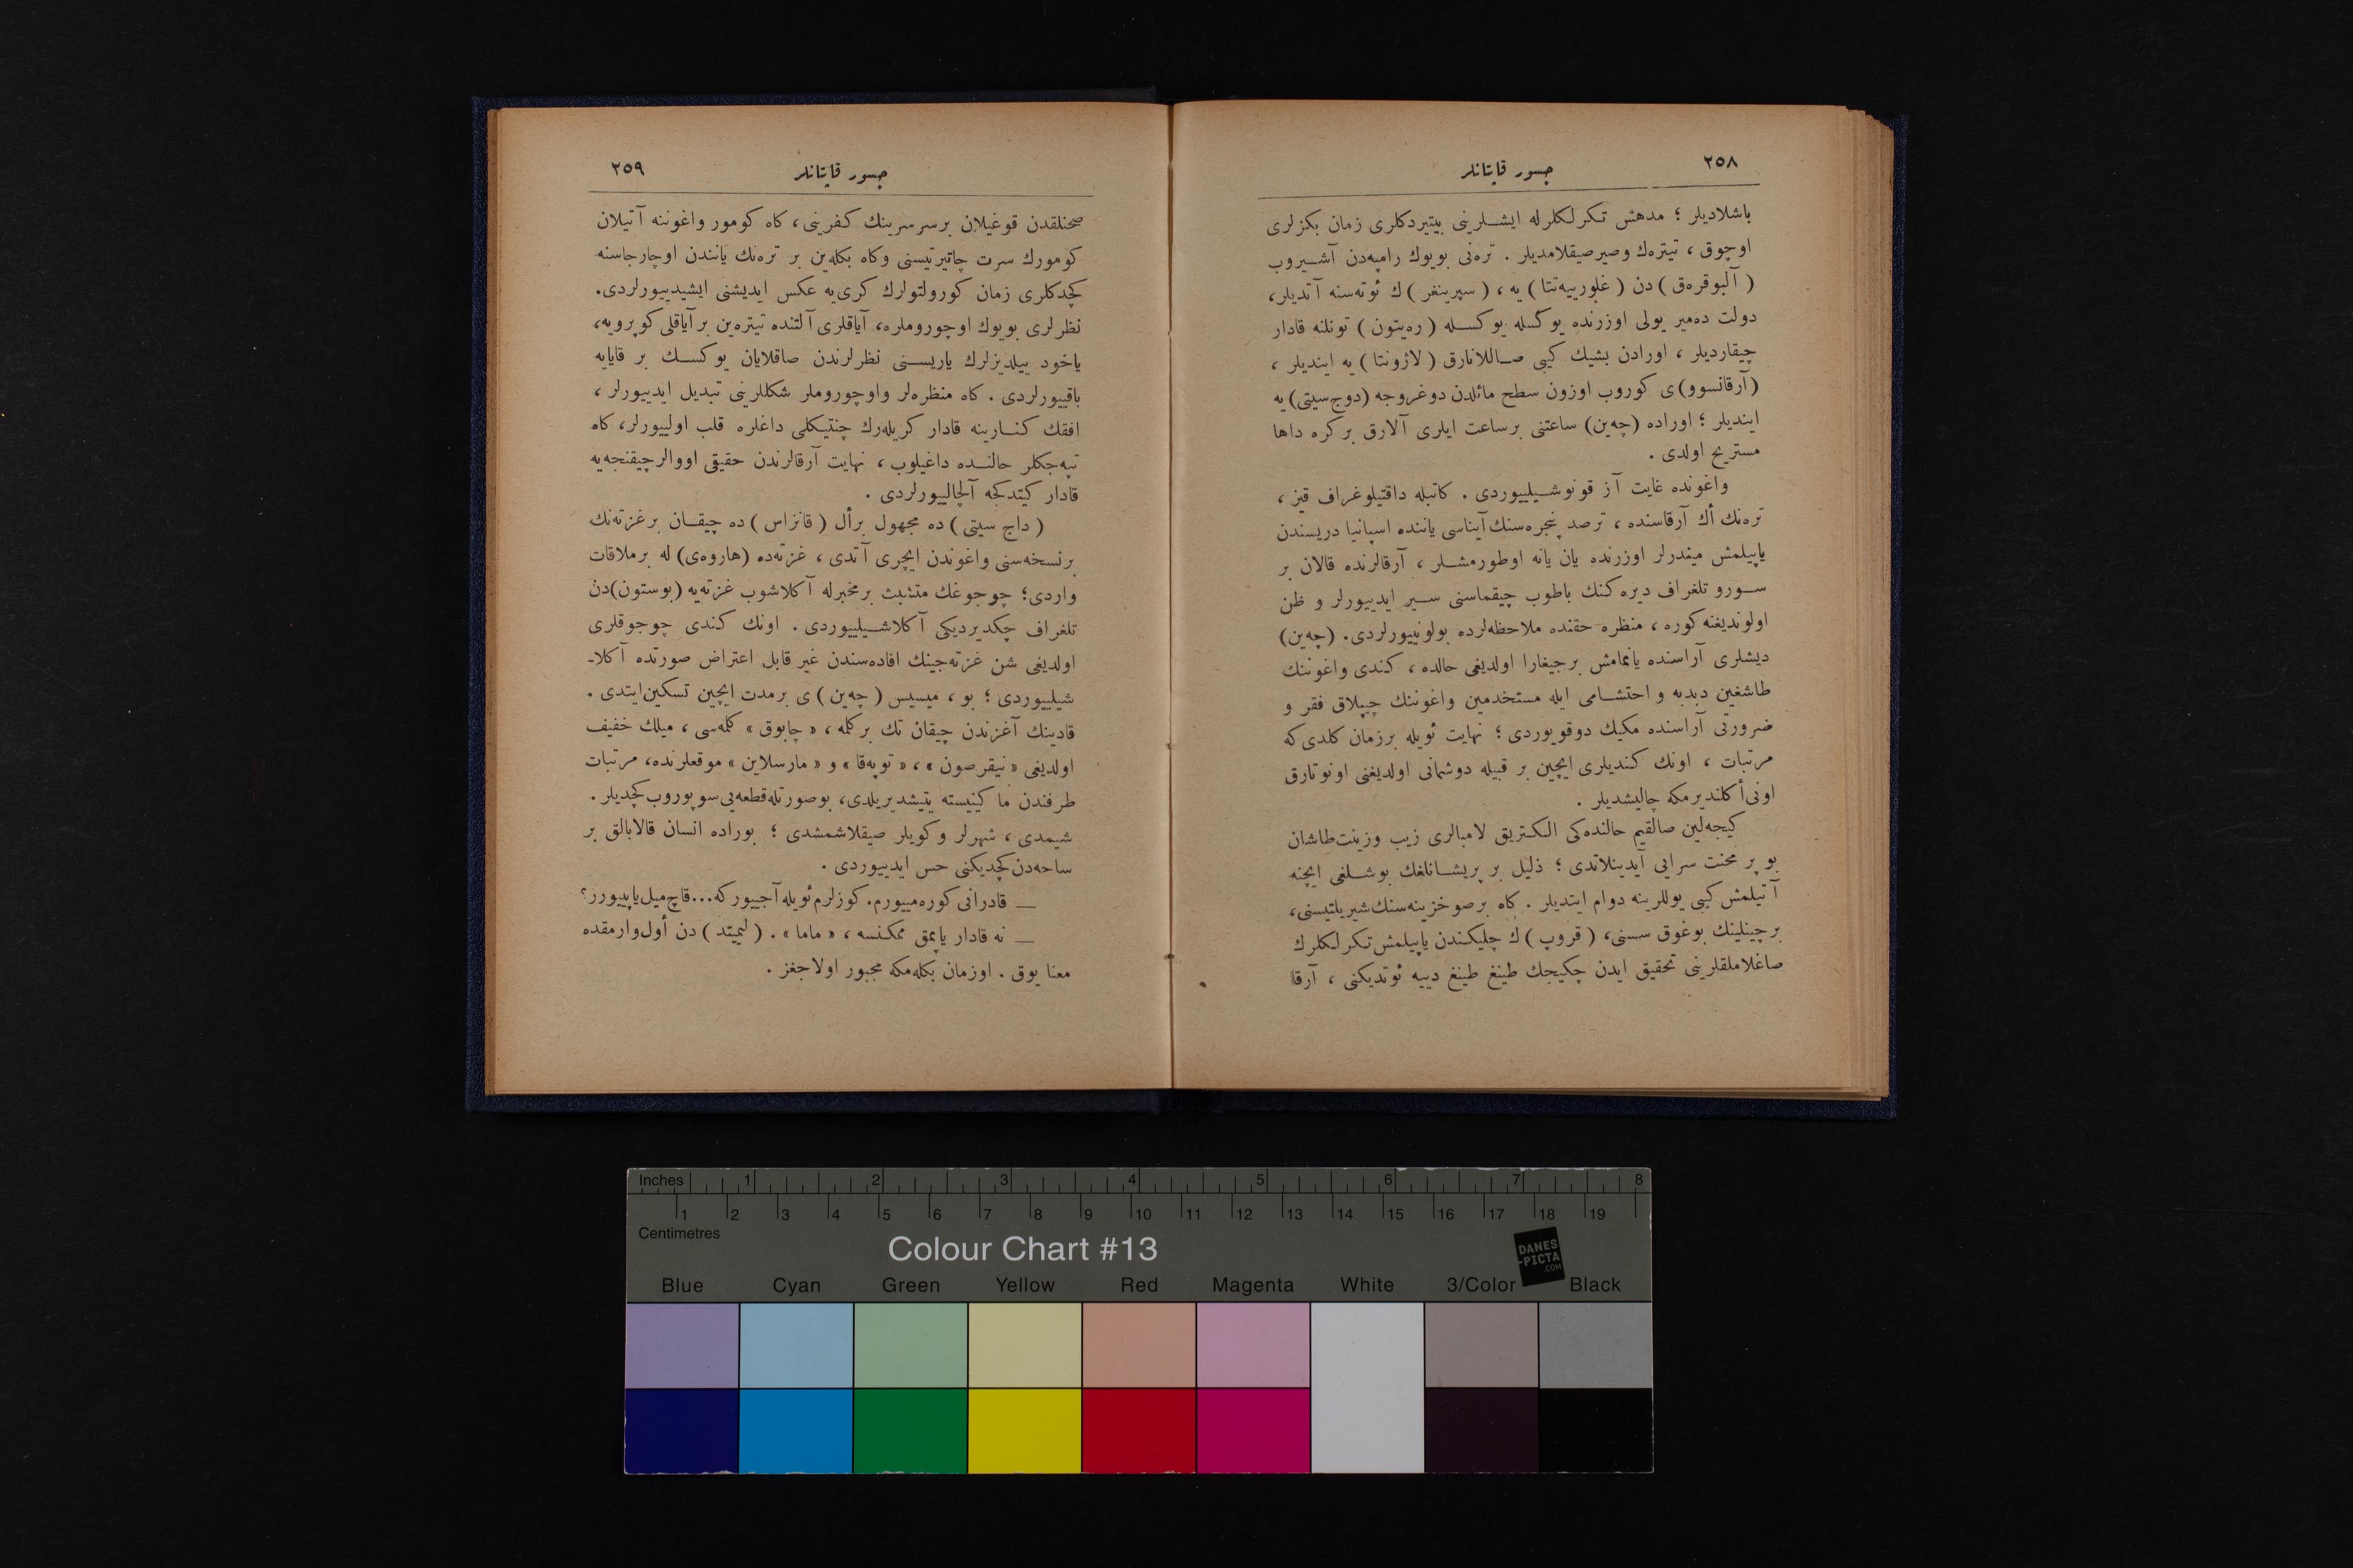 ٢٥٨
جسور قاپتانلر
باشلادیلر ؛ مدهش تكرلكلرله ایشــلرینی بیتیردكلری زمان بكزلری
اوچوق ، تیتره‌ك وصیرصیقلامدیلر . تره‌نی بویوك رامپه‌دن آشــیروب
( آلبوقرەق ) دن ( غلورییەتتا ) یه ، ( سپرینغر ) ك ئوته‌سنه آتدیلر،
دولت ده‌میر یولی اوزرنده یوكسله یوكســله ( ره‌یتون ) تونلنه قادار
چیقاردیلر ، اورادن بشیك كیبی صــاللانارق ( لاژونتا ) یه ایندیلر ،
(آرقانسوو) ی كوروب اوزون سطح مائلدن دوغروجه (دوج‌سیتی) یه
ایندیلر ؛ اوراده (چه‌ین) ساعتنی برساعت ایلری آلارق بركره داها
مستریح اولدی .
واغونده غایت آز قونوشــیلییوردی . كاتبله داقتیلوغراف قیز ،
تره‌نك أك آرقاسنده ، ترصد پنجره‌سنك آیناسی یاننده اسپانیا دریسندن
یاپیلمش میندرلر اوزرنده یان یانه اوطورمشــلر ، آرقالرنده قالان بر
ســورو تلغراف دیره‌كنك باطوب چیقماسنی ســیر ایدییورلر و ظن
اولوندیغنه كوره ، منظره حقنده ملاحظه‌لرده بولونییورلردی. (چه‌ین)
دیشلری آراسنده یانمامش برجیغارا اولدیغی حالده ، كندی واغوننك
طاشغین دبدبه و احتشــامی ایله مستخدمین واغوننك چیپلاق فقر و
ضرورتی آراسنده مكیك دوقویوردی ؛ نهایت ئویله برزمان كلدی كه
مرتبات ، اونك كندیلری ایچین بر قبیله دوشمانی اولدیغنی اونوتارق
اونی أكلندیرمكه چالیشدیلر .
كیجه‌لین صالقیم حالنده‌كی الكتریق لامبالری زیب وزینت‌طاشان
بو پر محنت سرایی آیدینلاتدی ؛ ذلیل بر پریشــانلغك بوشــلغی ایچنه
آتیلمش كیبی یوللرینه دوام ایتدیلر . كاه برصوخزینه‌سنك‌شیریلتیسنی،
برچینلینك بوغوق سسنی، ( قروپ ) ك چلیكندن یاپیلمش‌تكرلكلرك
صاغلاملقلرینی تحقیق ایدن چكیجك طینغ طینغ دییه ئوتدیكنی ، آرقا
٢٥٩
جسور قاپتانلر
صحنلقدن قوغیلان برسرسرینك كفرینی، كاه كومور واغوننه آتیلان
كومورك سرت چاتیرتیسنی وكاه بكله‌ین بر تره‌نك یانندن اوچارجاسنه
كچدكلری زمان كورولتولرك كری‌یه عكس ایدیشنی ایشیدییورلردی.
نظرلری بویوك اوچوروملره، آیاقلری آلتنده تیتره‌ین برآیاقلی كوپرویه،
یاخود ییلدیزلرك یاریســنی نظرلرندن صاقلایان یوكســك بر قایایه
باقییورلردی . كاه منظره‌لر واوچوروملر شكللرینی تبدیل ایدییورلر ،
افقك كنــارینه قادار كریله‌رك چنتیكلی داغلره قلب اولییورلر، كاه
تپه‌جكلر حالنــده داغیلوب ، نهایت آرقالرندن حقیقی اووالرچیقنجه‌یه
قادار كیتدكجه آلچالییورلردی .
( داج سیتی ) ده مجهول برأل ( قانزاس ) ده چیقــان برغزته‌نك
برنسخه‌سنی واغوندن ایچری آتدی ، غزته‌ده (هاروه‌ی) له برملاقات
واردی؛ چوجوغك متشبث برمخبرله آكلاشوب غزته‌یه (بوستون)دن
تلغراف چكدیردیكی آكلاشــیلییوردی . اونك كندی چوجوقلری
اولدیغی شن غزته‌جینك افاده‌سندن غیر قابل اعتراض صورتده آكلا-
شیلییوردی ؛ بو ، میسیس ( چه‌ین ) ی برمدت ایچین تسكین‌ایتدی .
قادینك آغزندن چیقان تك بركلمه ، « چابوق » كلمه‌سی ، میلك خفیف
اولدیغی « نیقرصون » ، « توپه‌قا » و « مارسلاین » موقعلرنده، مرتبات
طرفندن ماكینیسته یتیشدیریلدی، بوصورتله‌قطعه‌یی‌سوپوروب‌كچدیلر.
شیمدی ، شهرلر وكویلر صیقلاشمشدی ؛ بوراده انسان قالابالق بر
ساحه‌دن‌كچدیكنی حس ایدییوردی .
— قادرانی كوره‌مییورم. كوزلرم‌ئویله‌آجییوركه...قاچ‌میل‌یاپییورز؟
— نه قادار یاپمق ممكنسه ، « ماما » . ( لیمیتد ) دن أول‌وارمقده
معنا یوق . اوزمان بكله‌مكه مجبور اولاجغز .
Inches 1 2 3 4 5 6 7 8
1 2 3 4 5 6 7 8 9 10 11 12 13 14 15 16 17 18 19
Centimetres
Colour Chart #13
DANES
-PICTA
.COM
Blue Cyan Green Yellow Red Magenta White 3/Color Black